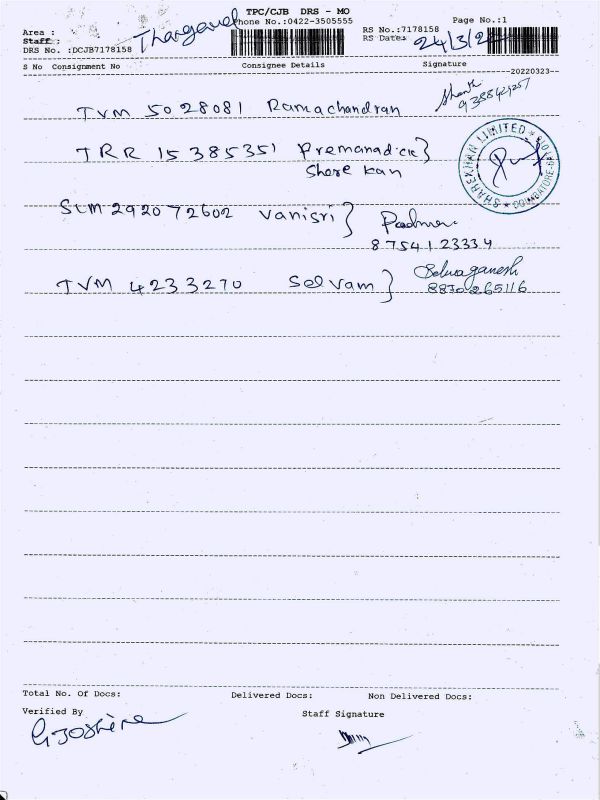 TPC/CJB DRS - MO
Area : Thangavel Phone No.:0422-3505555 Page No.:1
Staff : RS No.:7178158
DRS No. :DCJB7178158 RS Date: 24/3/22
S No Consignment No Consignee Details Signature
--20220323--
TVM 5028081 Ramachandran
TRR 15385351 Premanadick}
Share kan
SHAREKHAN LIMITED
COIMBATORE
SLM 292072602 Vanisri} Padma
8754123334
TVM 4233270 Selvam} Selvaganesh
8870265116
Total No. Of Docs: Delivered Docs: Non Delivered Docs:
Verified By Staff Signature